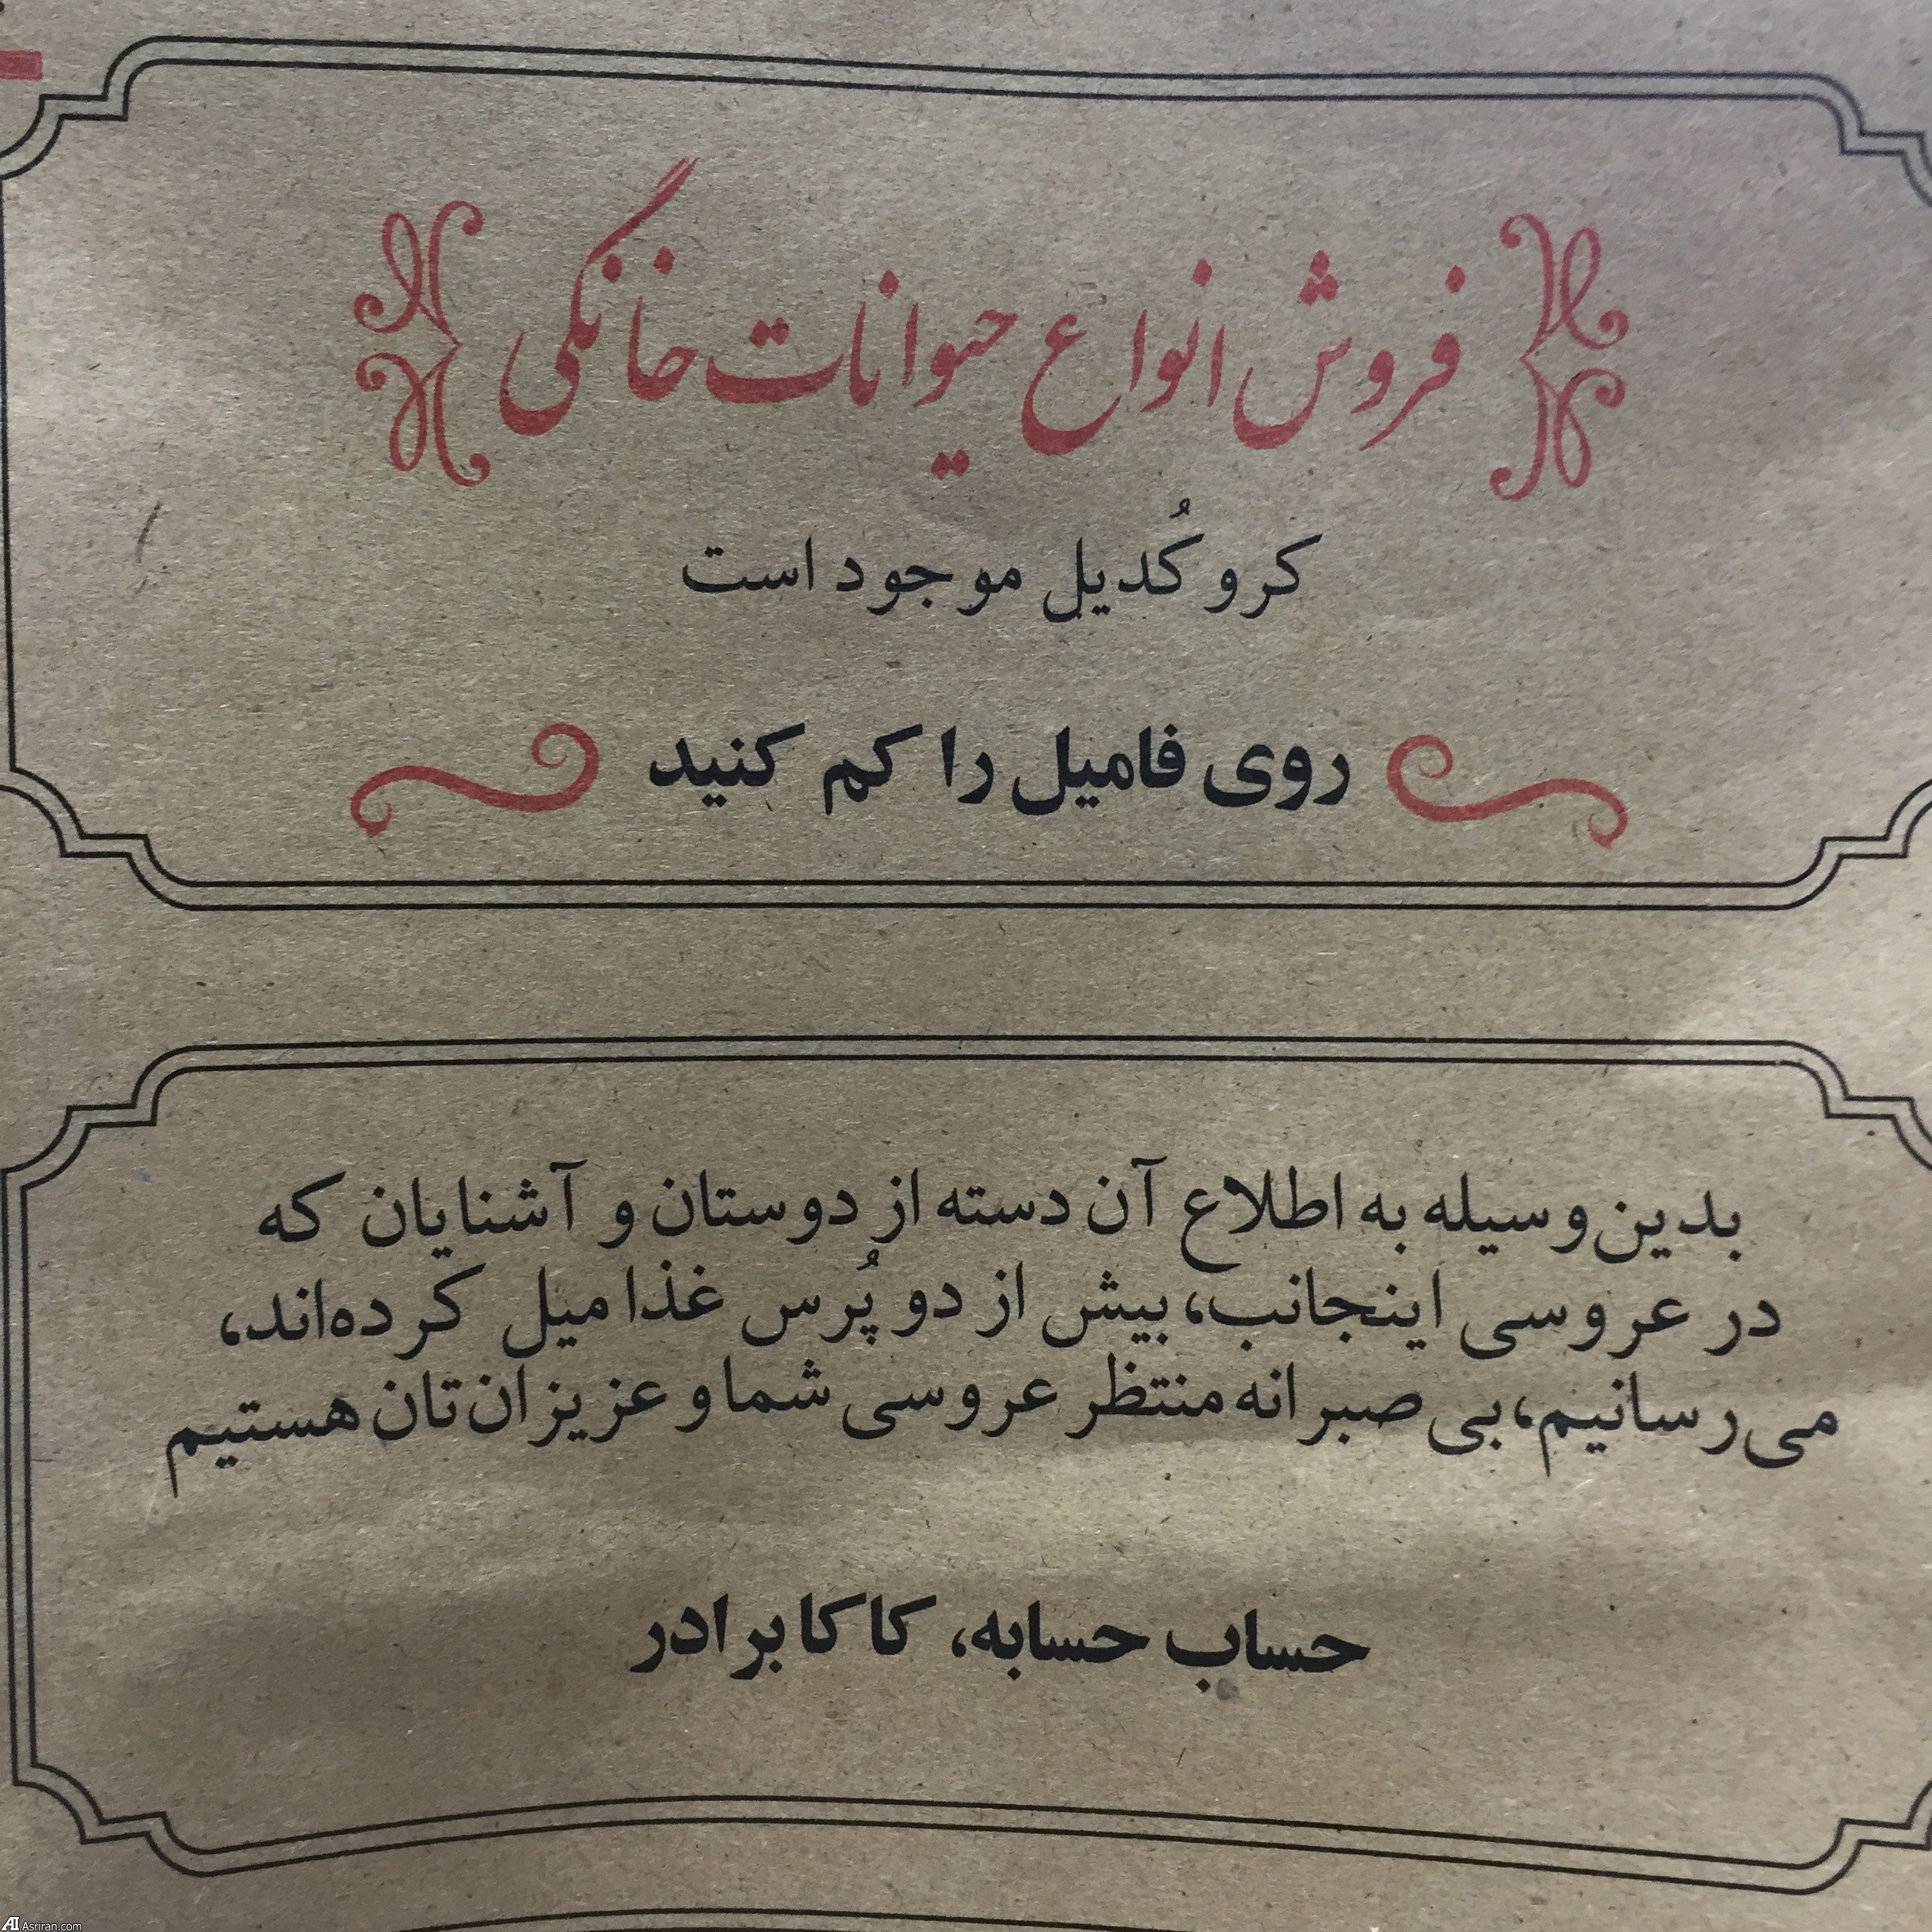 فروش انواع حیوانات خانگی
کروکُدیل موجود است
روی فامیل را کم کنید
بدین‌وسیله به اطلاع آن دسته از دوستان و آشنایان که
در عروسی اینجانب، بیش از دو پُرس غذا میل کرده‌اند،
می‌رسانیم، بی‌صبرانه منتظر عروسی شما و عزیزان‌تان هستیم
حساب حسابه، کاکا برادر
AI Asriran.com